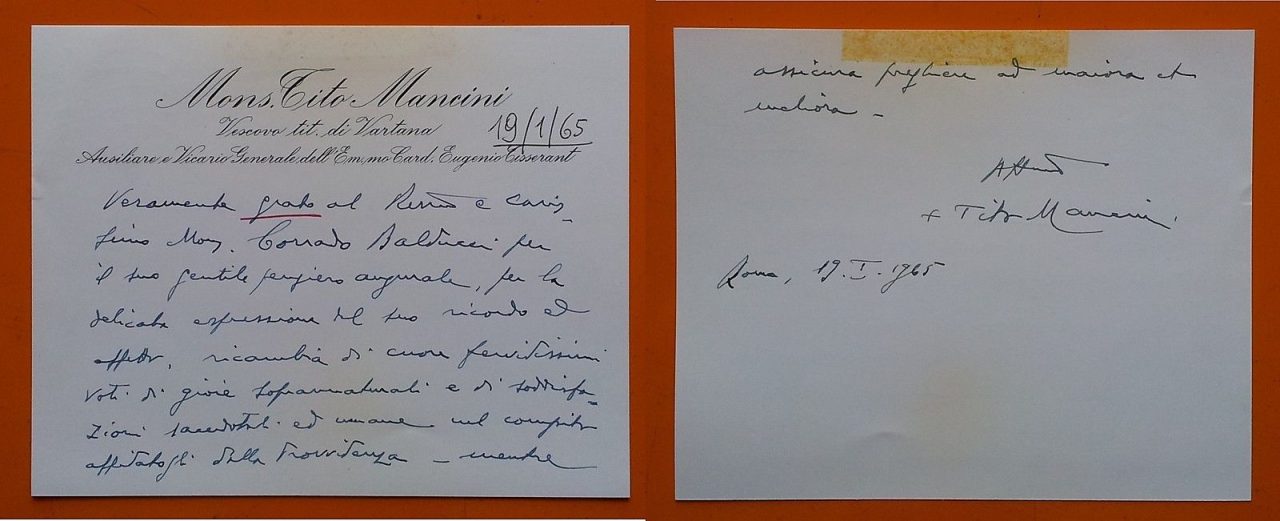 Mons. Tito Mancini
Vescovo tit. di Vartana
19/1/65
Ausiliare e Vicario Generale dell'Em.mo Card. Eugenio Tisserant
Veramente grato al Rev.mo e caris_
simo Mons. Corrado Balducci per
il suo gentile pensiero augurale, per la
delicata espressione del suo ricordo ed
affetto, ricambia di cuore fervidissimi
voti di gioie soprannaturali e di soddisfa_
zioni sacerdotali ed umane nel compito
affidatogli dalla Provvidenza – mentre
assicura preghiere ad maiora et
meliora –
Aff.mo
+ Tito Mancini.
Roma, 19.I.1965